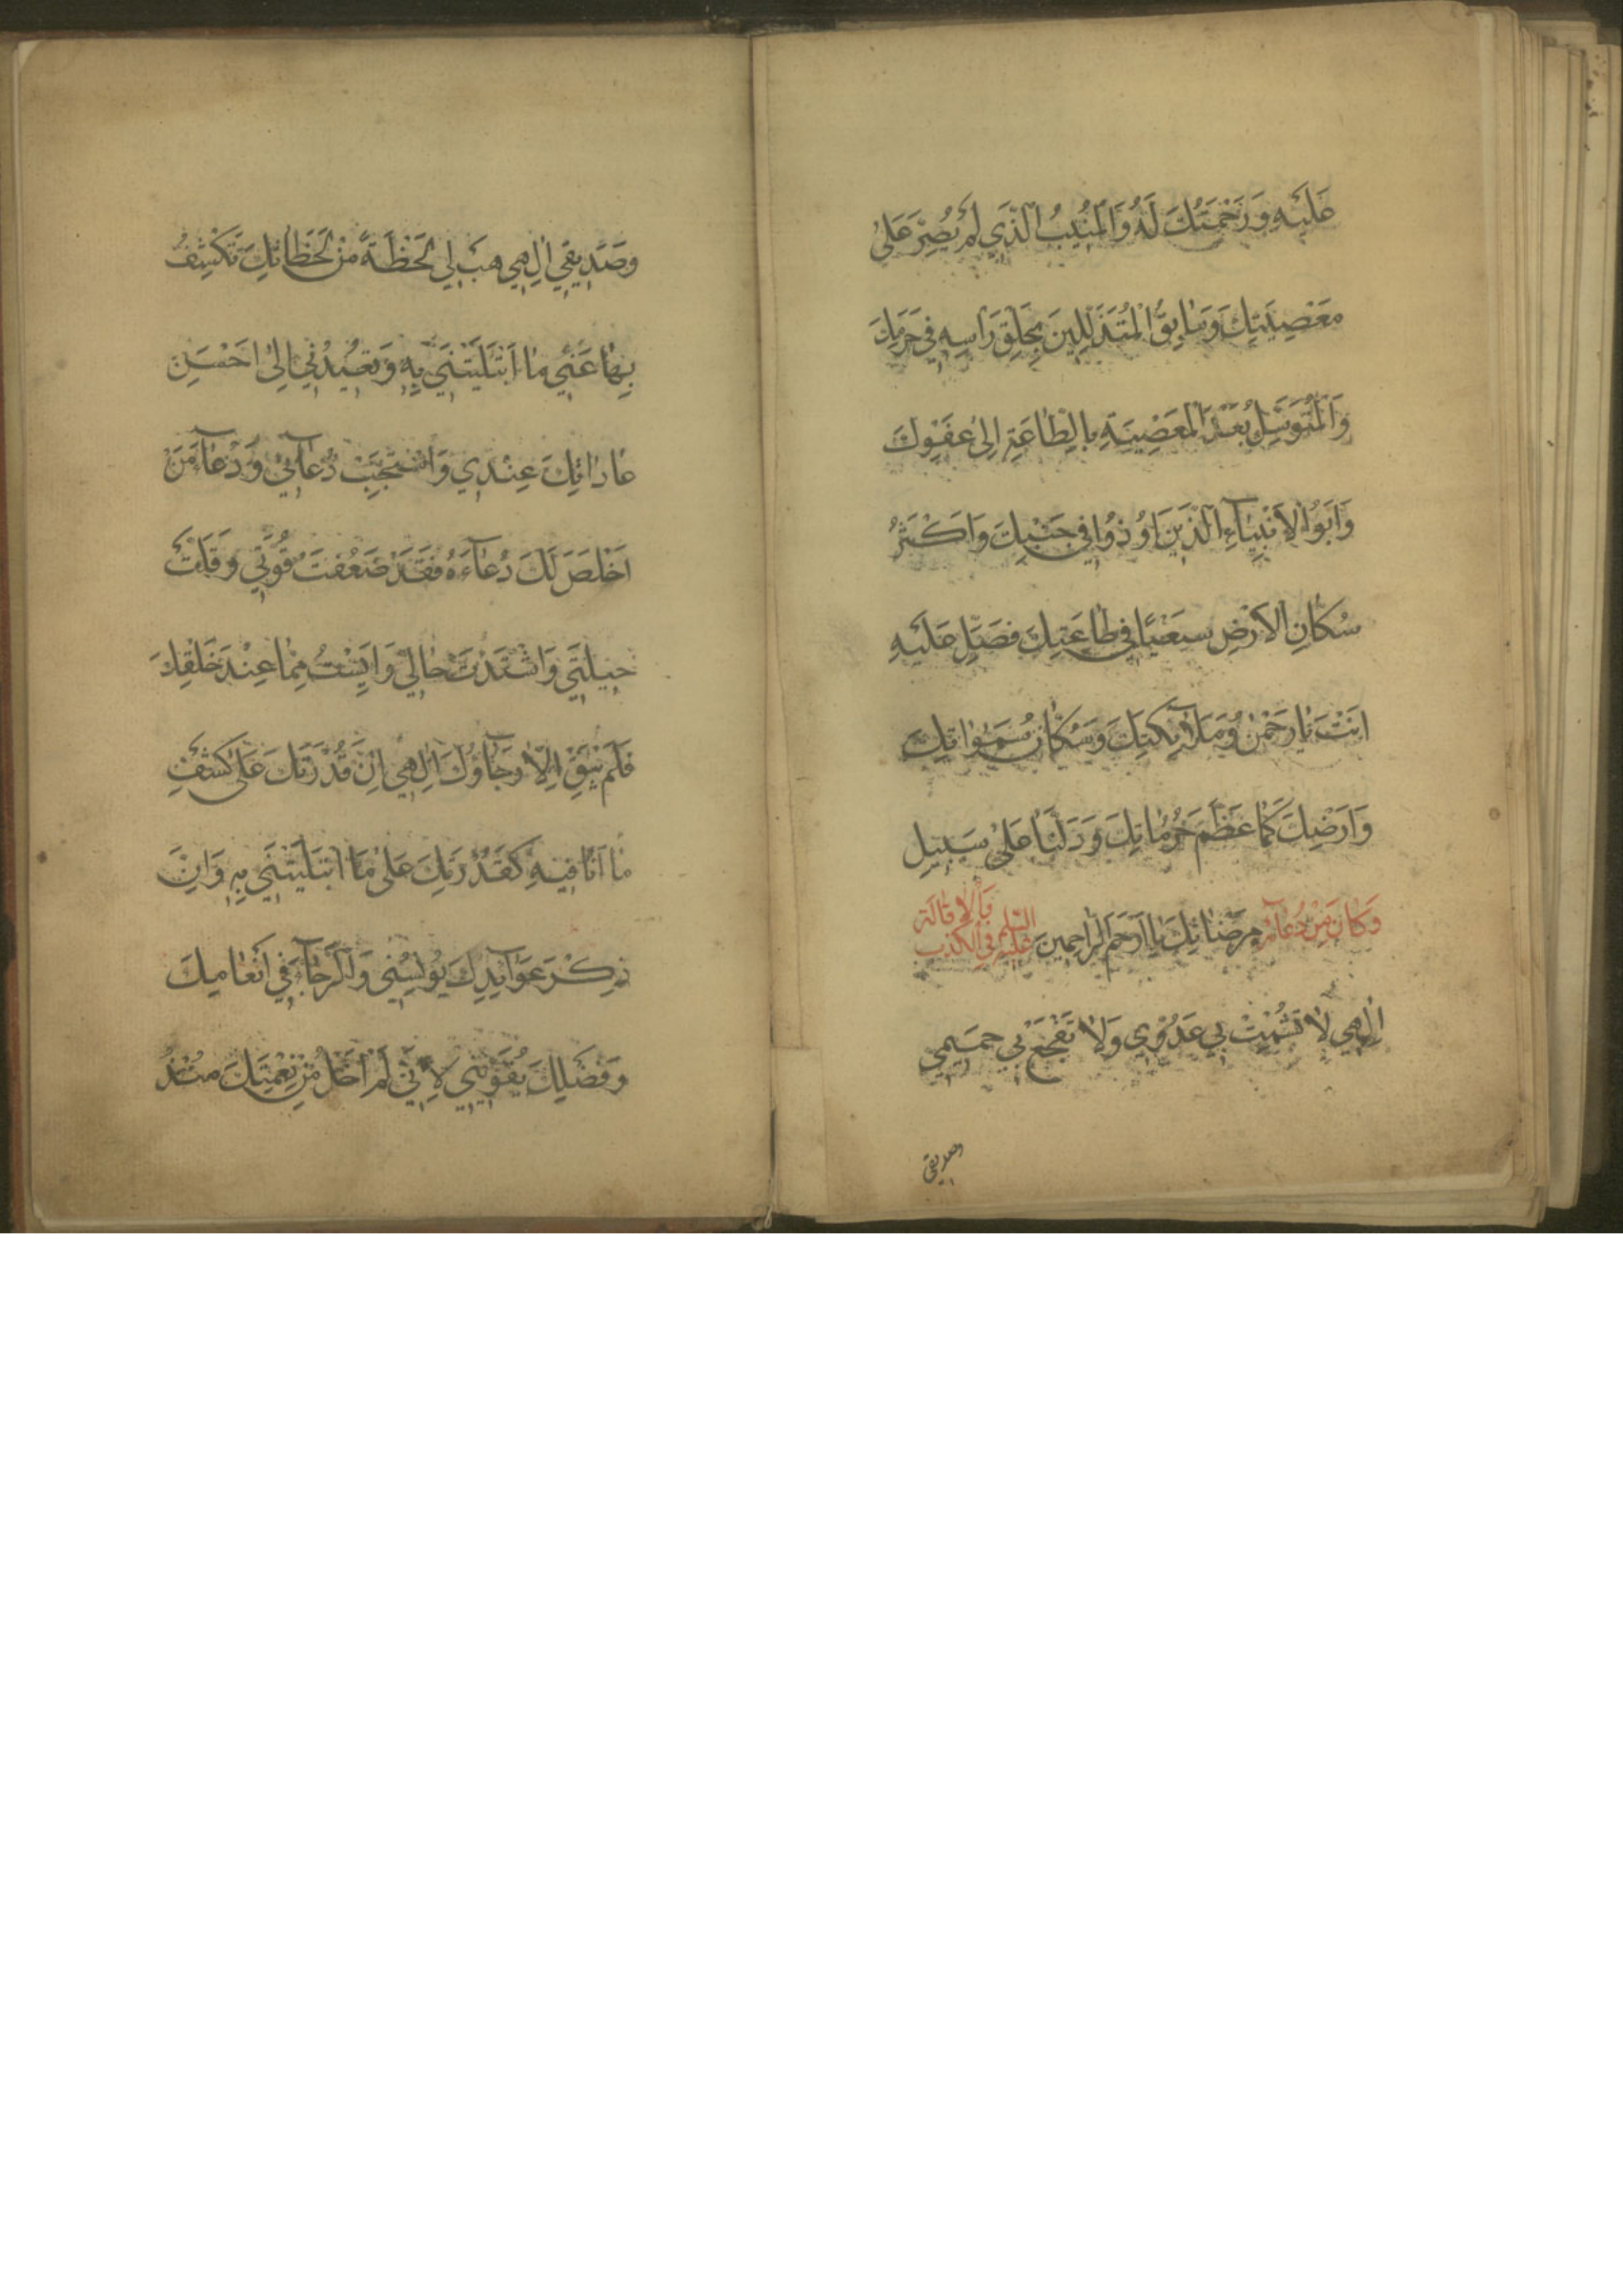 عَلَيْهِ وَرَحْمَتُكَ لَهُ وَالْمُنيبُ الَّذي لَمْ يُصِرَّ عَلىٰ
مَعْصِيَتِكَ وَسٰابِقُ الْمُتَذَلِّلينَ بِحَلْقِ رَاْسِهِ في حَرَمِكَ
وَالْمُتَوَسِّلُ بَعْدَ الْمَعْصِيَةِ بِالطّٰاعَةِ اِلىٰ عَفْوِكَ
وَاَبُو الْاَنْبِيٰآءِ الَّذينَ اوُذُوا في جَنْبِكَ وَاَكْثَرُ
سُكّٰانِ الْاَرْضِ سَعْيًا في طٰاعَتِكَ فَصَلِّ عَلَيْهِ
اَنْتَ يٰا رَحْمٰنُ وَمَلٰٓائِكَتُكَ وَسُكّٰانُ سَمٰوٰاتِكَ
وَاَرْضِكَ كَمٰا عَظَّمَ حُرُمٰاتِكَ وَدَلَّنٰا عَلىٰ سَبيلِ
مَرْضٰاتِكَ يٰا اَرْحَمَ الرّٰاحِمينَ
وَكٰانَ مِنْ دُعٰآئِهِ عَلَيْهِ السَّلَم في الكَرْبِ وَالْاِقٰالَةِ
اِلٰهي لٰا تُشْمِتْ بي عَدُوّي وَلٰا تَفْجَعْ بي حَميمي
وصديقي
وَصَديقي اِلٰهي هَبْ لي لَحْظَةً مِنْ لَحَظٰاتِكَ تَكْشِفُ
بِهٰا عَنّي مٰا ابْتَلَيْتَني بِهِ وَتُعيدُني اِلىٰ اَحْسَنِ
عٰادٰاتِكَ عِنْدي وَاسْتَجِبْ دُعٰآئي وَدُعٰآءَ مَنْ
اَخْلَصَ لَكَ دُعٰآءَهُ فَقَدْ ضَعُفَتْ قُوَّتي وَقَلَّتْ
حيلَتي وَاشْتَدَّتْ حٰالي وَاَيِسْتُ مِمّٰا عِنْدَ خَلْقِكَ
فَلَمْ يَبْقَ اِلّٰا رَجٰآؤُكَ اِلٰهي اِنَّ قُدْرَتَكَ عَلىٰ كَشْفِ
مٰا اَنَا فيهِ كَقُدْرَتِكَ عَلىٰ مَا ابْتَلَيْتَني بِهِ وَاِنَّ
ذِكْرَ عَوٰآئِدِكَ يُؤنِسُني وَالرَّجٰآءَ في اِنْعٰامِكَ
وَفَضْلِكَ يُقَوّيني لِاَنّي لَمْ اَخْلُ مِنْ نِعْمَتِكَ مُنْذُ